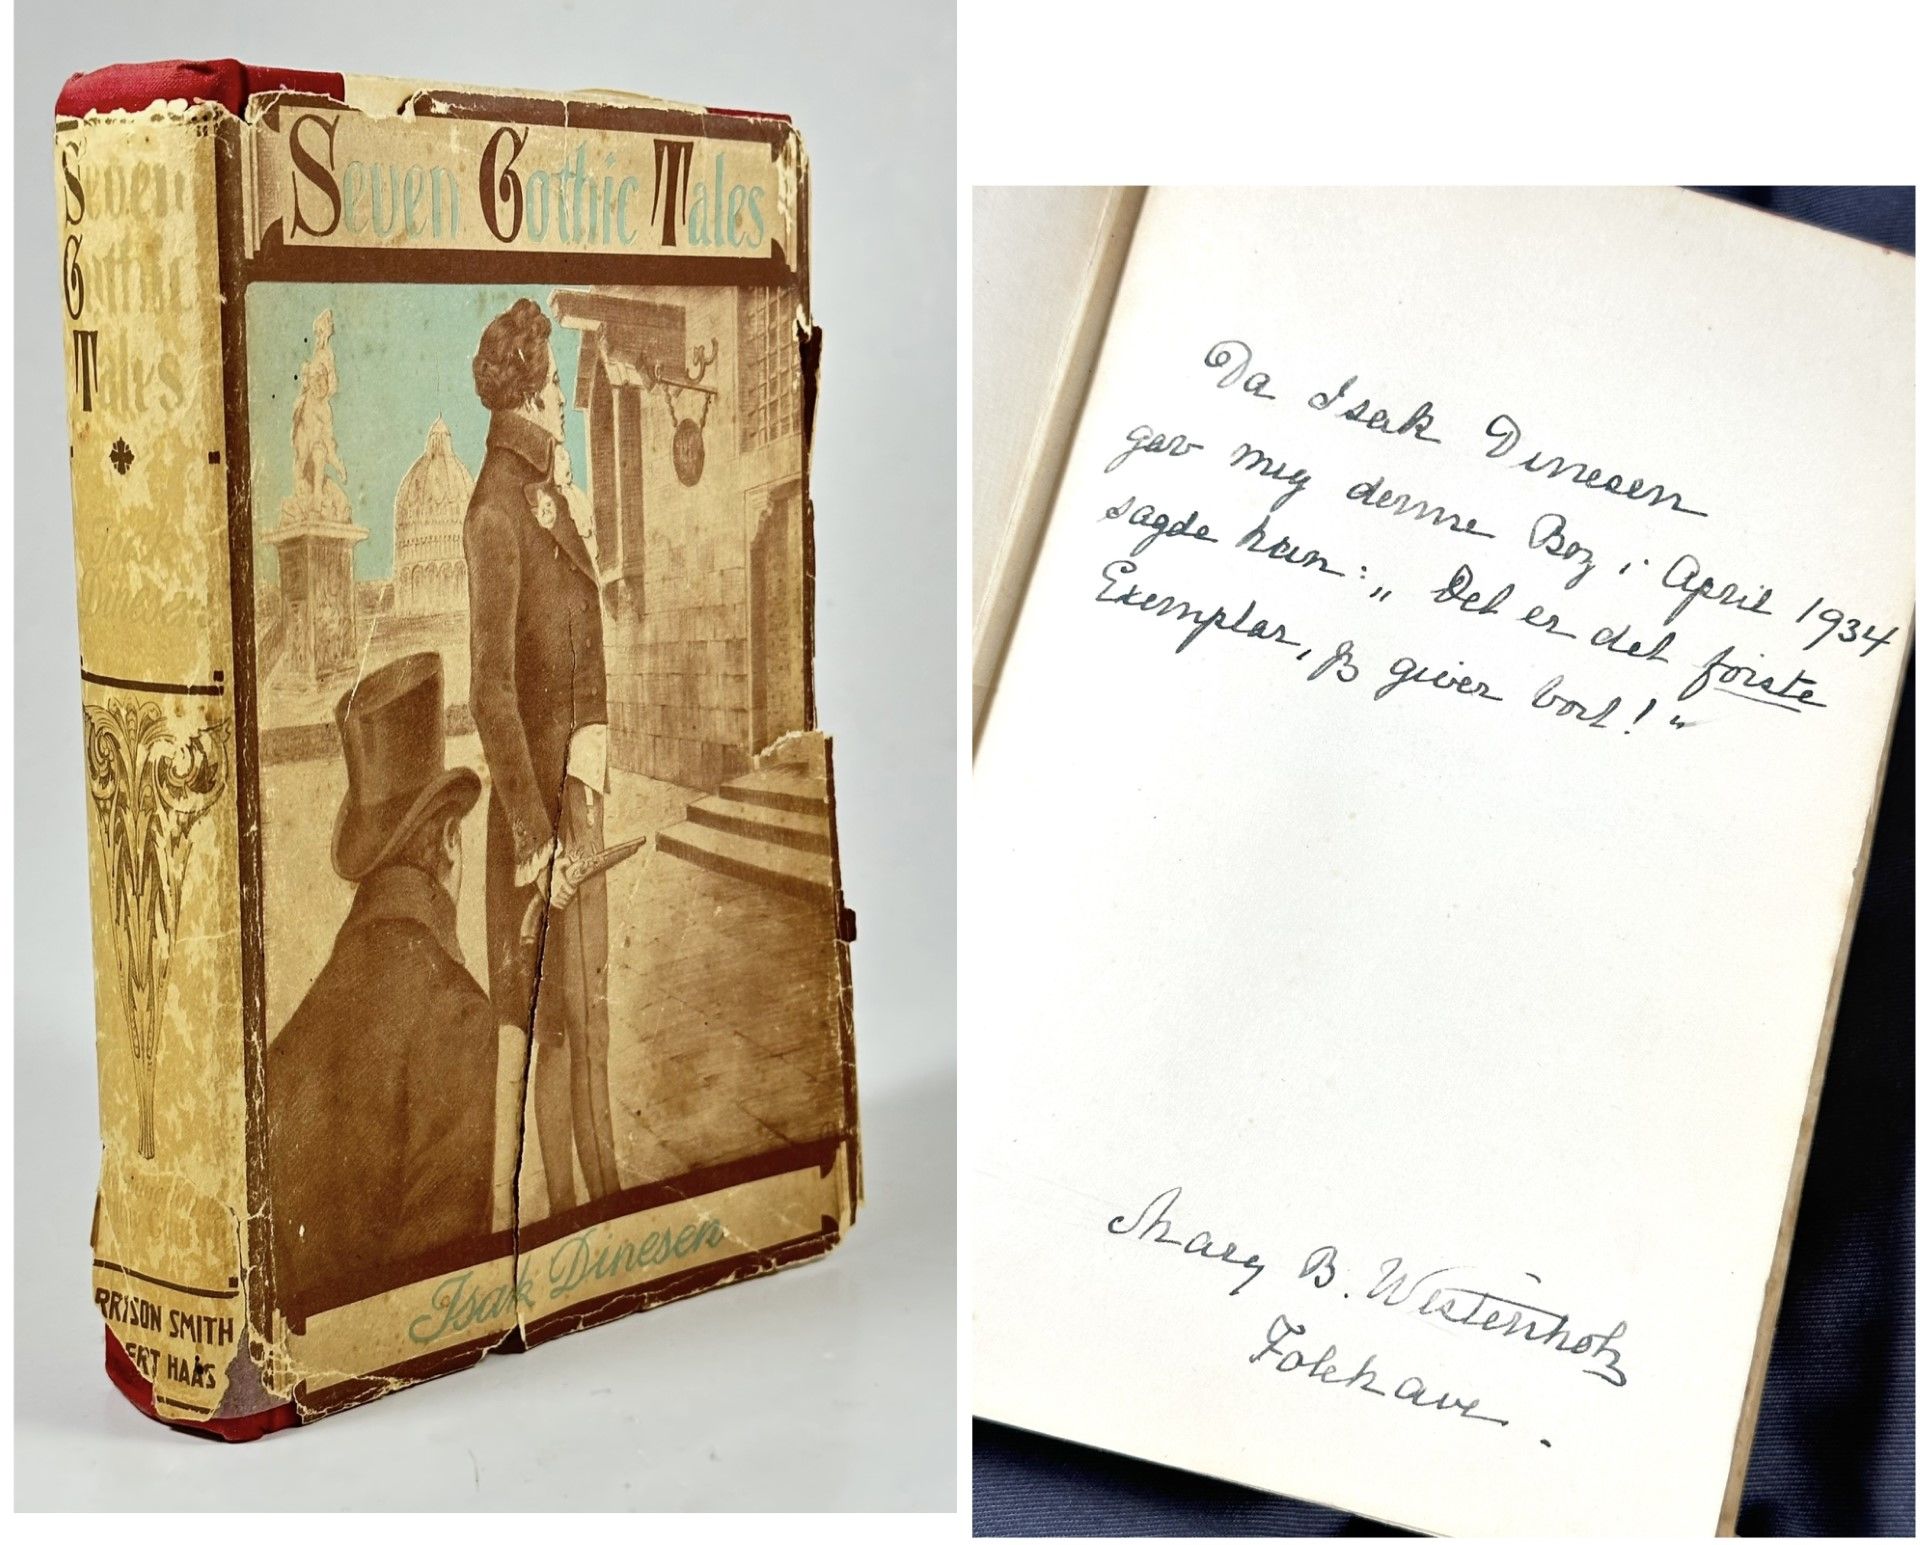 Seven
Gothic
Tales
RRISON SMITH
ERT HAAS
Seven Gothic Tales
Isak Dinesen
Da Isak Dinesen
gav mig denne Bog i April 1934
sagde han: „Det er det første
Exemplar, jeg giver bort!“
Mary B. Westenholz
Folehave.